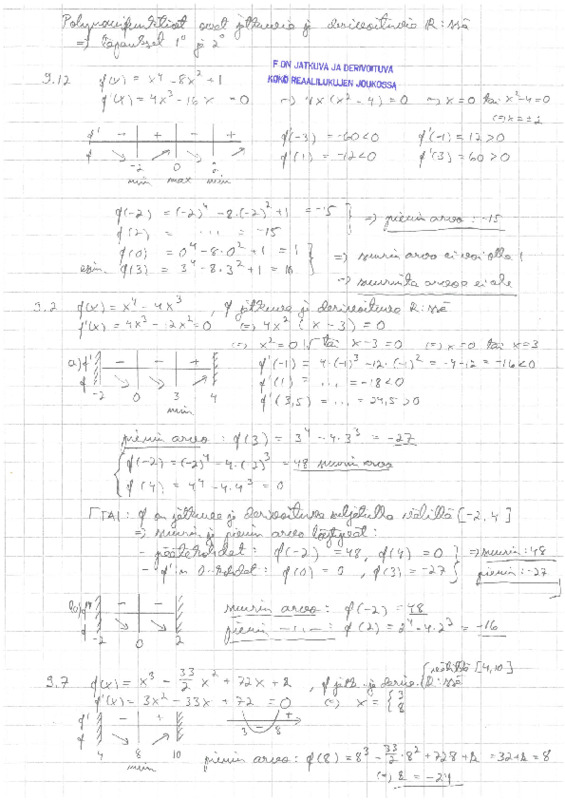 Polynomifunktiot ovat jatkuvia ja derivoituvia R:ssä
=> tapaukset 1° ja 2°
F ON JATKUVA JA DERIVOITUVA
KOKO REAALILUKUJEN JOUKOSSA
9.12 f(x) = x⁴ - 8x² + 1
f'(x) = 4x³ - 16x = 0 => 4x(x² - 4) = 0 => x = 0 tai x² - 4 = 0
<=> x = ±2
f' - + - +
f
-2 0 2
min max min
f'(-3) = -60 < 0 f'(-1) = 12 > 0
f'(1) = -12 < 0 f'(3) = 60 > 0
f(-2) = (-2)⁴ - 8·(-2)² + 1 = -15
f(2) = ..... = -15
=> pienin arvo: -15
f(0) = 0⁴ - 8·0² + 1 = 1
esim. f(3) = 3⁴ - 8·3² + 1 = 10
=> suurin arvo ei voi olla 1
=> suurinta arvoa ei ole
9.2 f(x) = x⁴ - 4x³, f jatkuva ja derivoituva R:ssä
f'(x) = 4x³ - 12x² = 0 <=> 4x²(x - 3) = 0
<=> x² = 0 tai x - 3 = 0 <=> x = 0 tai x = 3
a) f' - - +
f
-2 0 3 4
min
f'(-1) = 4·(-1)³ - 12·(-1)² = -4 - 12 = -16 < 0
f'(1) = ..... = -8 < 0
f'(3,5) = ..... = 24,5 > 0
pienin arvo: f(3) = 3⁴ - 4·3³ = -27
f(-2) = (-2)⁴ - 4·(-2)³ = 48 suurin arvo
f(4) = 4⁴ - 4·4³ = 0
TAI: f on jatkuva ja derivoituva suljetulla välillä [-2, 4]
=> suurin ja pienin arvo löytyvät:
- päätekohdat: f(-2) = 48, f(4) = 0
- f':n 0-kohdat: f(0) = 0, f(3) = -27
=> suurin: 48
pienin: -27
b) f' - -
f
-2 0 2
suurin arvo: f(-2) = 48
pienin -"-: f(2) = 2⁴ - 4·2³ = -16
välillä [4,10]
9.7 f(x) = x³ - 33/2 x² + 72x + k, f jatk. ja deriv. R:ssä
f'(x) = 3x² - 33x + 72 = 0 <=> x = { 3 8
f' - +
f
4 8 10
min
3 - 8 +
pienin arvo: f(8) = 8³ - 33/2·8² + 72·8 + k = 32 + k = 8
<=> k = -24